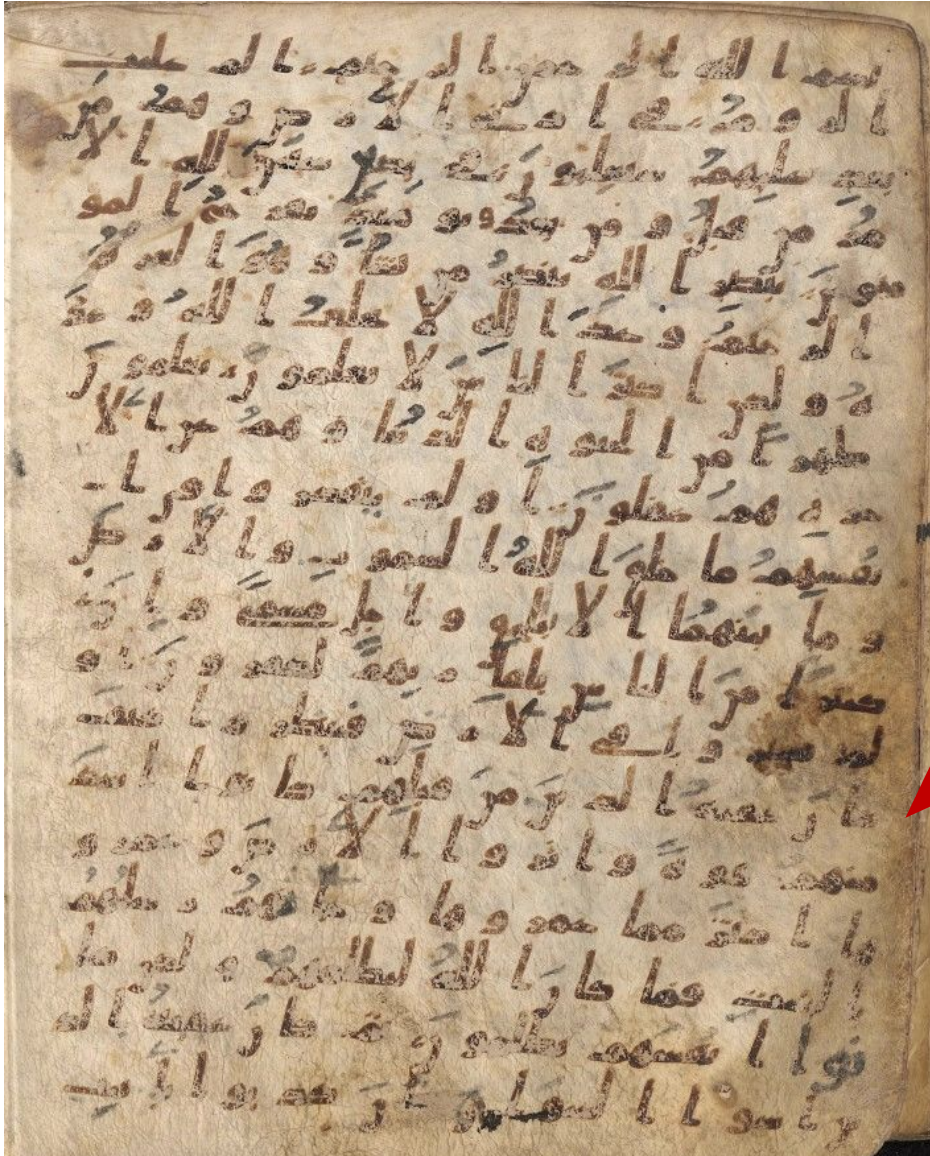 بسم الله الرحمن الرحيم الم غلبت
الروم في ادنى الارض وهم من
بعد غلبهم سيغلبون في بضع سنين لله الا
مر من قبل ومن بعد ويومئذ يفرح المو
منون بنصر الله ينصر من يشا وهو العزيز
الرحيم وعد الله لا يخلف الله وعد
ه ولكن اكثر الناس لا يعلمون يعلمون
ظهرا من الحيوه الدنيا وهم عن الا
خره هم غفلون اولم يتفكروا في ا
نفسهم ما خلق الله السموت والارض
وما بينهما الا بالحق واجل مسمى وان
كثيرا من الناس بلقاي ربهم لكفرون او
لم يسيروا في الارض فينظروا كيف
كان عقبه الذين من قبلهم كانوا اشد
منهم قوه واثاروا الارض وعمرو
ها اكثر مما عمروها وجاتهم رسلهم
بالبينت فما كان الله ليظلمهم ولكن كا
نوا انفسهم يظلمون ثم كان عقبه الذ
ين اسوا السواى ان كذبوا بايت